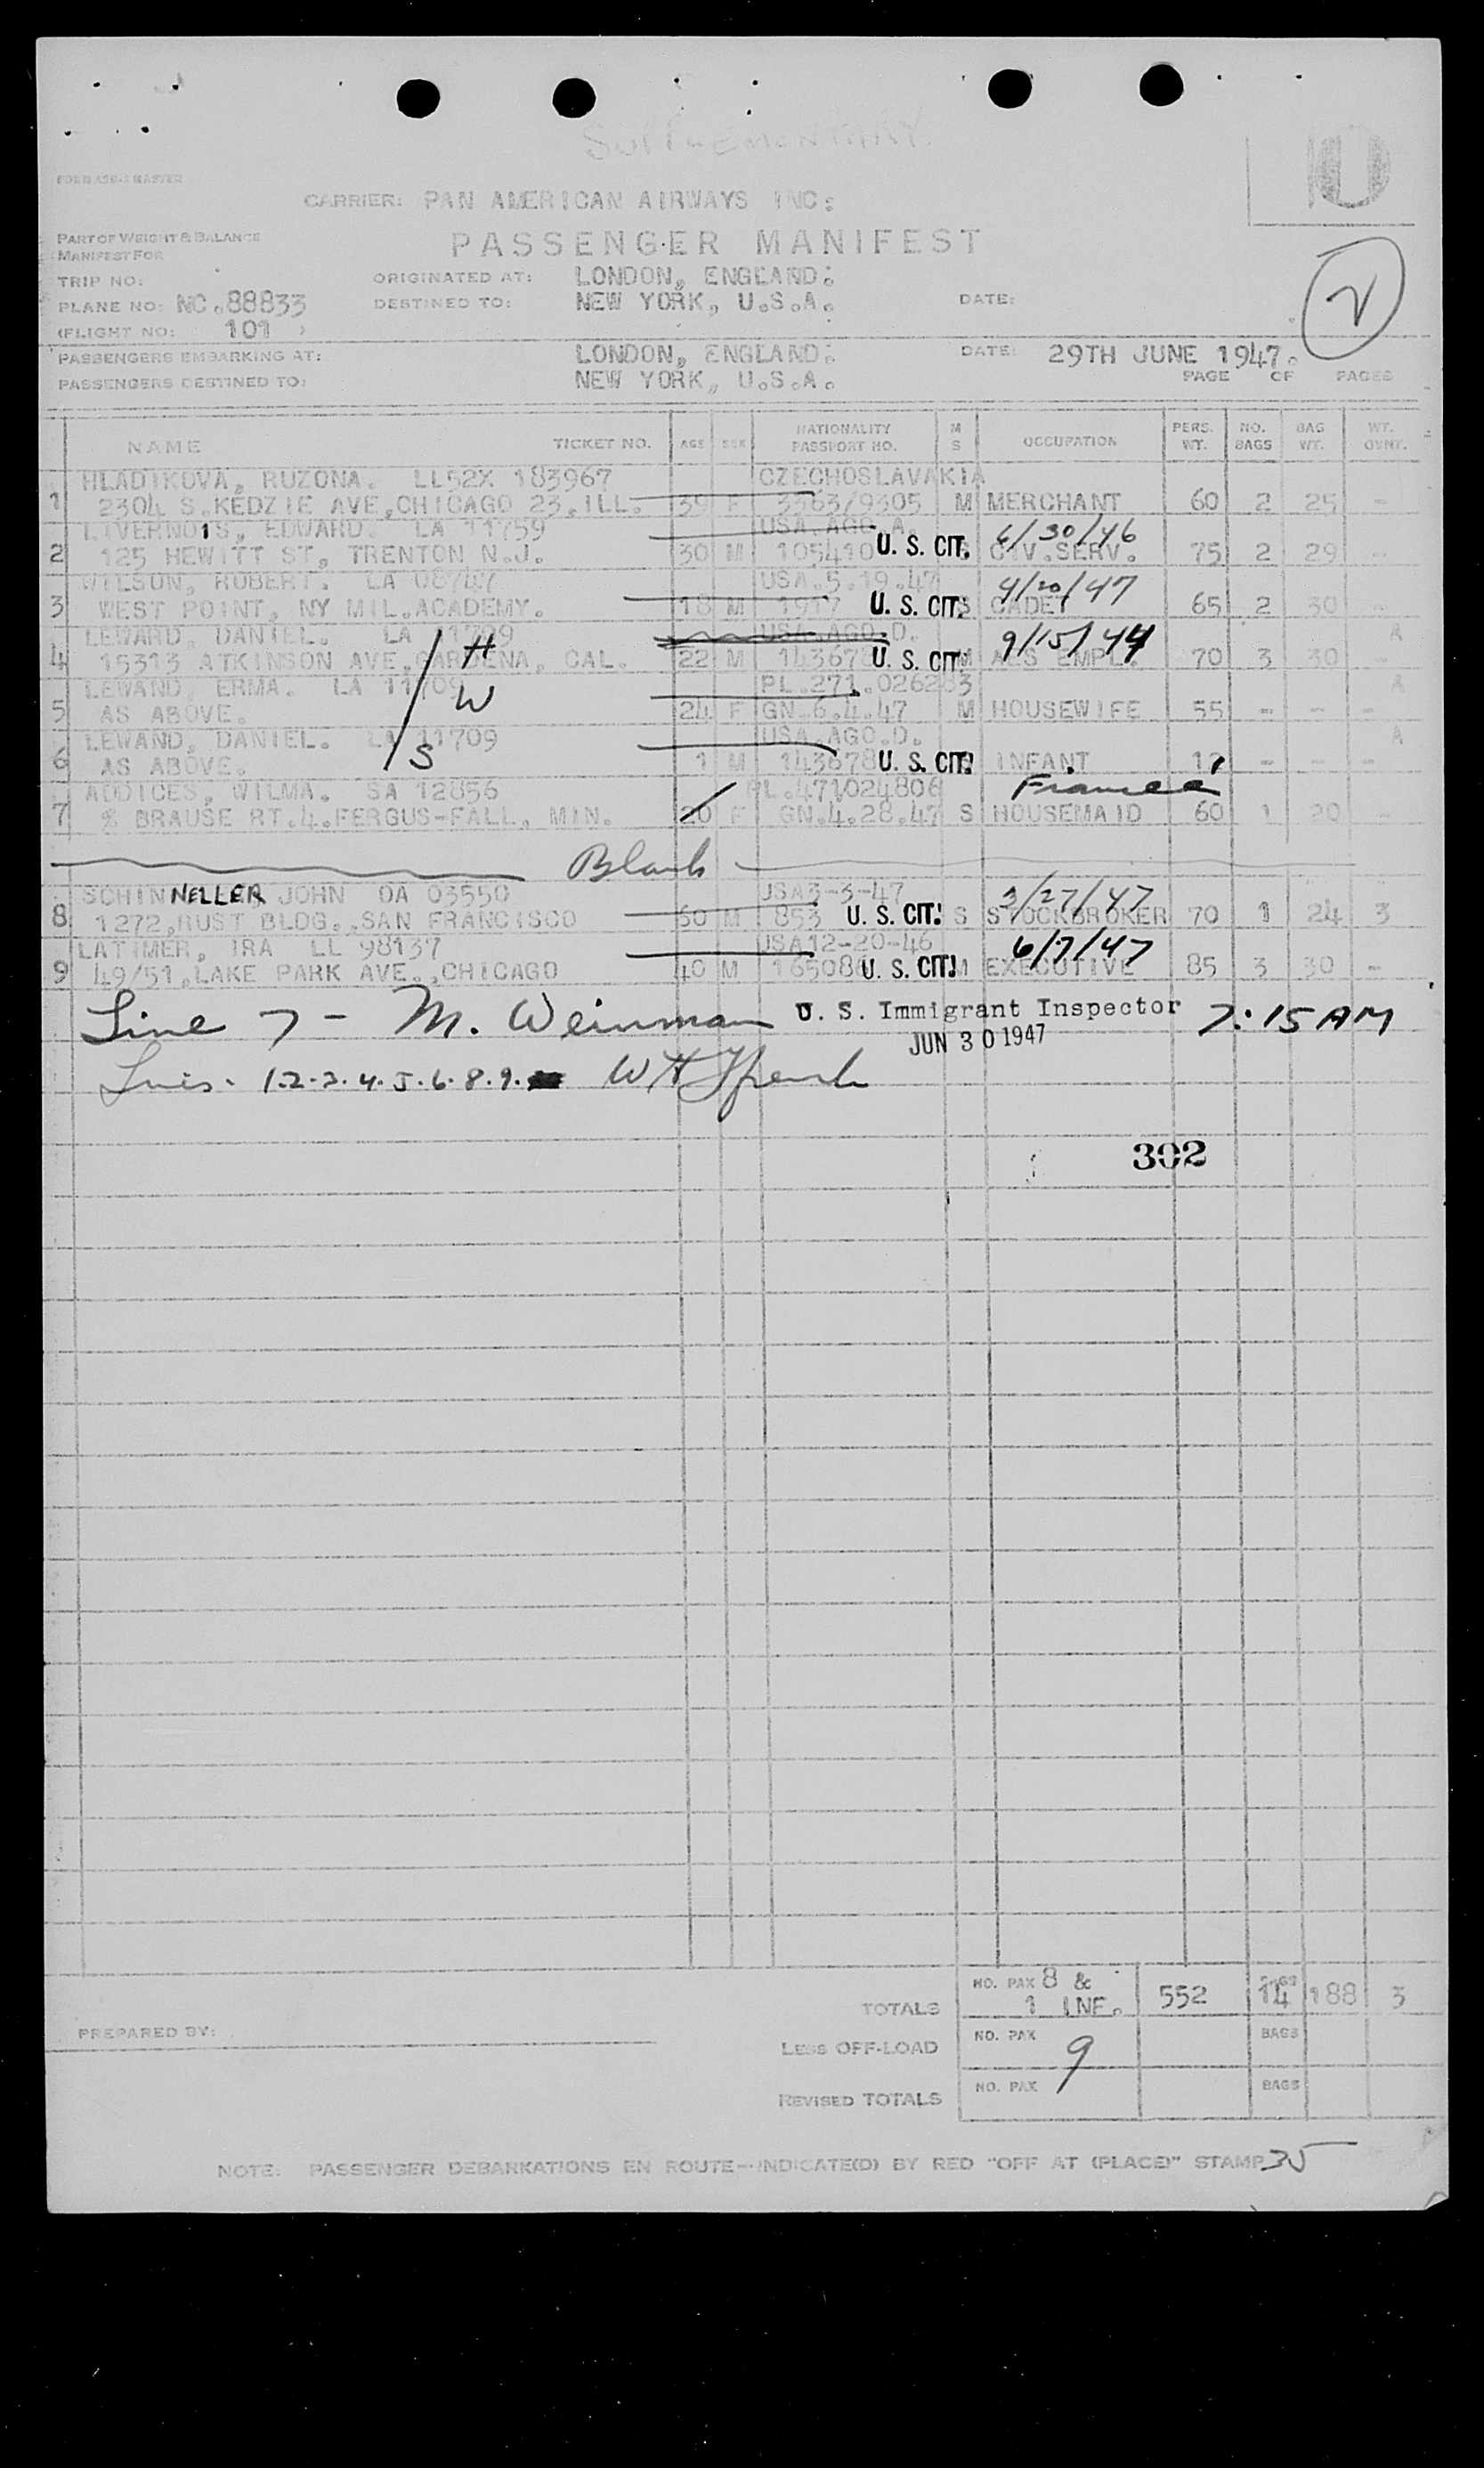 SUPPLEMENTARY.
U
FORM 4350-1 MASTER
CARRIER: PAN AMERICAN AIRWAYS INC:
PART OF WEIGHT & BALANCE
MANIFEST FOR
PASSENGER MANIFEST
TRIP NO: ORIGINATED AT: LONDON, ENGLAND:
PLANE NO: NC.88833 DESTINED TO: NEW YORK, U.S.A. DATE:
(FLIGHT NO: 101 )
PASSENGERS EMBARKING AT: LONDON, ENGLAND: DATE: 29TH JUNE 1947.
PASSENGERS DESTINED TO: NEW YORK, U.S.A. PAGE OF PAGES
NAME TICKET NO. AGE SEX NATIONALITY PASSPORT NO. M S OCCUPATION PERS. WT. NO. BAGS BAG WT. WT. OVNT.
HLADIKOVA, RUZONA. LL52X 183967 CZECHOSLAVAKIA
1 2304 S.KEDZIE AVE,CHICAGO 23.ILL. 39 F 3363/9305 M MERCHANT 60 2 25 -
LIVERNOIS, EDWARD. LA 11759 USA.AGO.A. 6/30/46
2 125 HEWITT ST, TRENTON N.J. 30 M 105410 U. S. CIT. CIV.SERV. 75 2 29 -
WILSON, ROBERT. LA 08747 USA.5.19.47 4/20/47
3 WEST POINT, NY MIL.ACADEMY. 18 M 1917 U. S. CIT. S CADET 65 2 30 -
LEWARD, DANIEL. LA 11709 H USA.AGO.D. 9/15/44 A
4 15313 ATKINSON AVE,GARDENA, CAL. 22 M 143678 U. S. CIT. M AGS EMPL. 70 3 30 -
LEWAND, ERMA. LA 11709 W PL.271.026263 A
5 AS ABOVE. 24 F GN.6.4.47 M HOUSEWIFE 55 - - -
LEWAND, DANIEL. LA 11709 USA.AGO.D. A
6 AS ABOVE. S 1 M 143678 U. S. CIT. INFANT 12 - - -
ADDICES, WILMA. SA 12856 PL.471024806 Francee
7 % BRAUSE RT.4.FERGUS-FALL, MIN. 20 F GN.4.28.47 S HOUSEMAID 60 1 20 -
Blank
SCHINNELLER JOHN OA 03550 USA3-3-47 3/27/47
8 1272,RUST BLDG.,SAN FRANCISCO 60 M 853 U. S. CIT. S STOCKBROKER 70 1 24 3
LATIMER, IRA LL 98137 USA12-20-46 6/7/47
9 49/51,LAKE PARK AVE.,CHICAGO 40 M 165086 U. S. CIT. M EXECUTIVE 85 3 30 -
Line 7 - M. Weinman U. S. Immigrant Inspector 7:15 AM
JUN 30 1947
Lines. 1.2.3.4.5.6.8.9.
302
TOTALS NO. PAX 8 & 1 INF. 552 BAGS 14 188 3
PREPARED BY:
LESS OFF-LOAD NO. PAX 9 BAGS
REVISED TOTALS NO. PAX BAGS
NOTE: PASSENGER DEBARKATIONS EN ROUTE--INDICATE(D) BY RED "OFF AT (PLACE)" STAMP 35